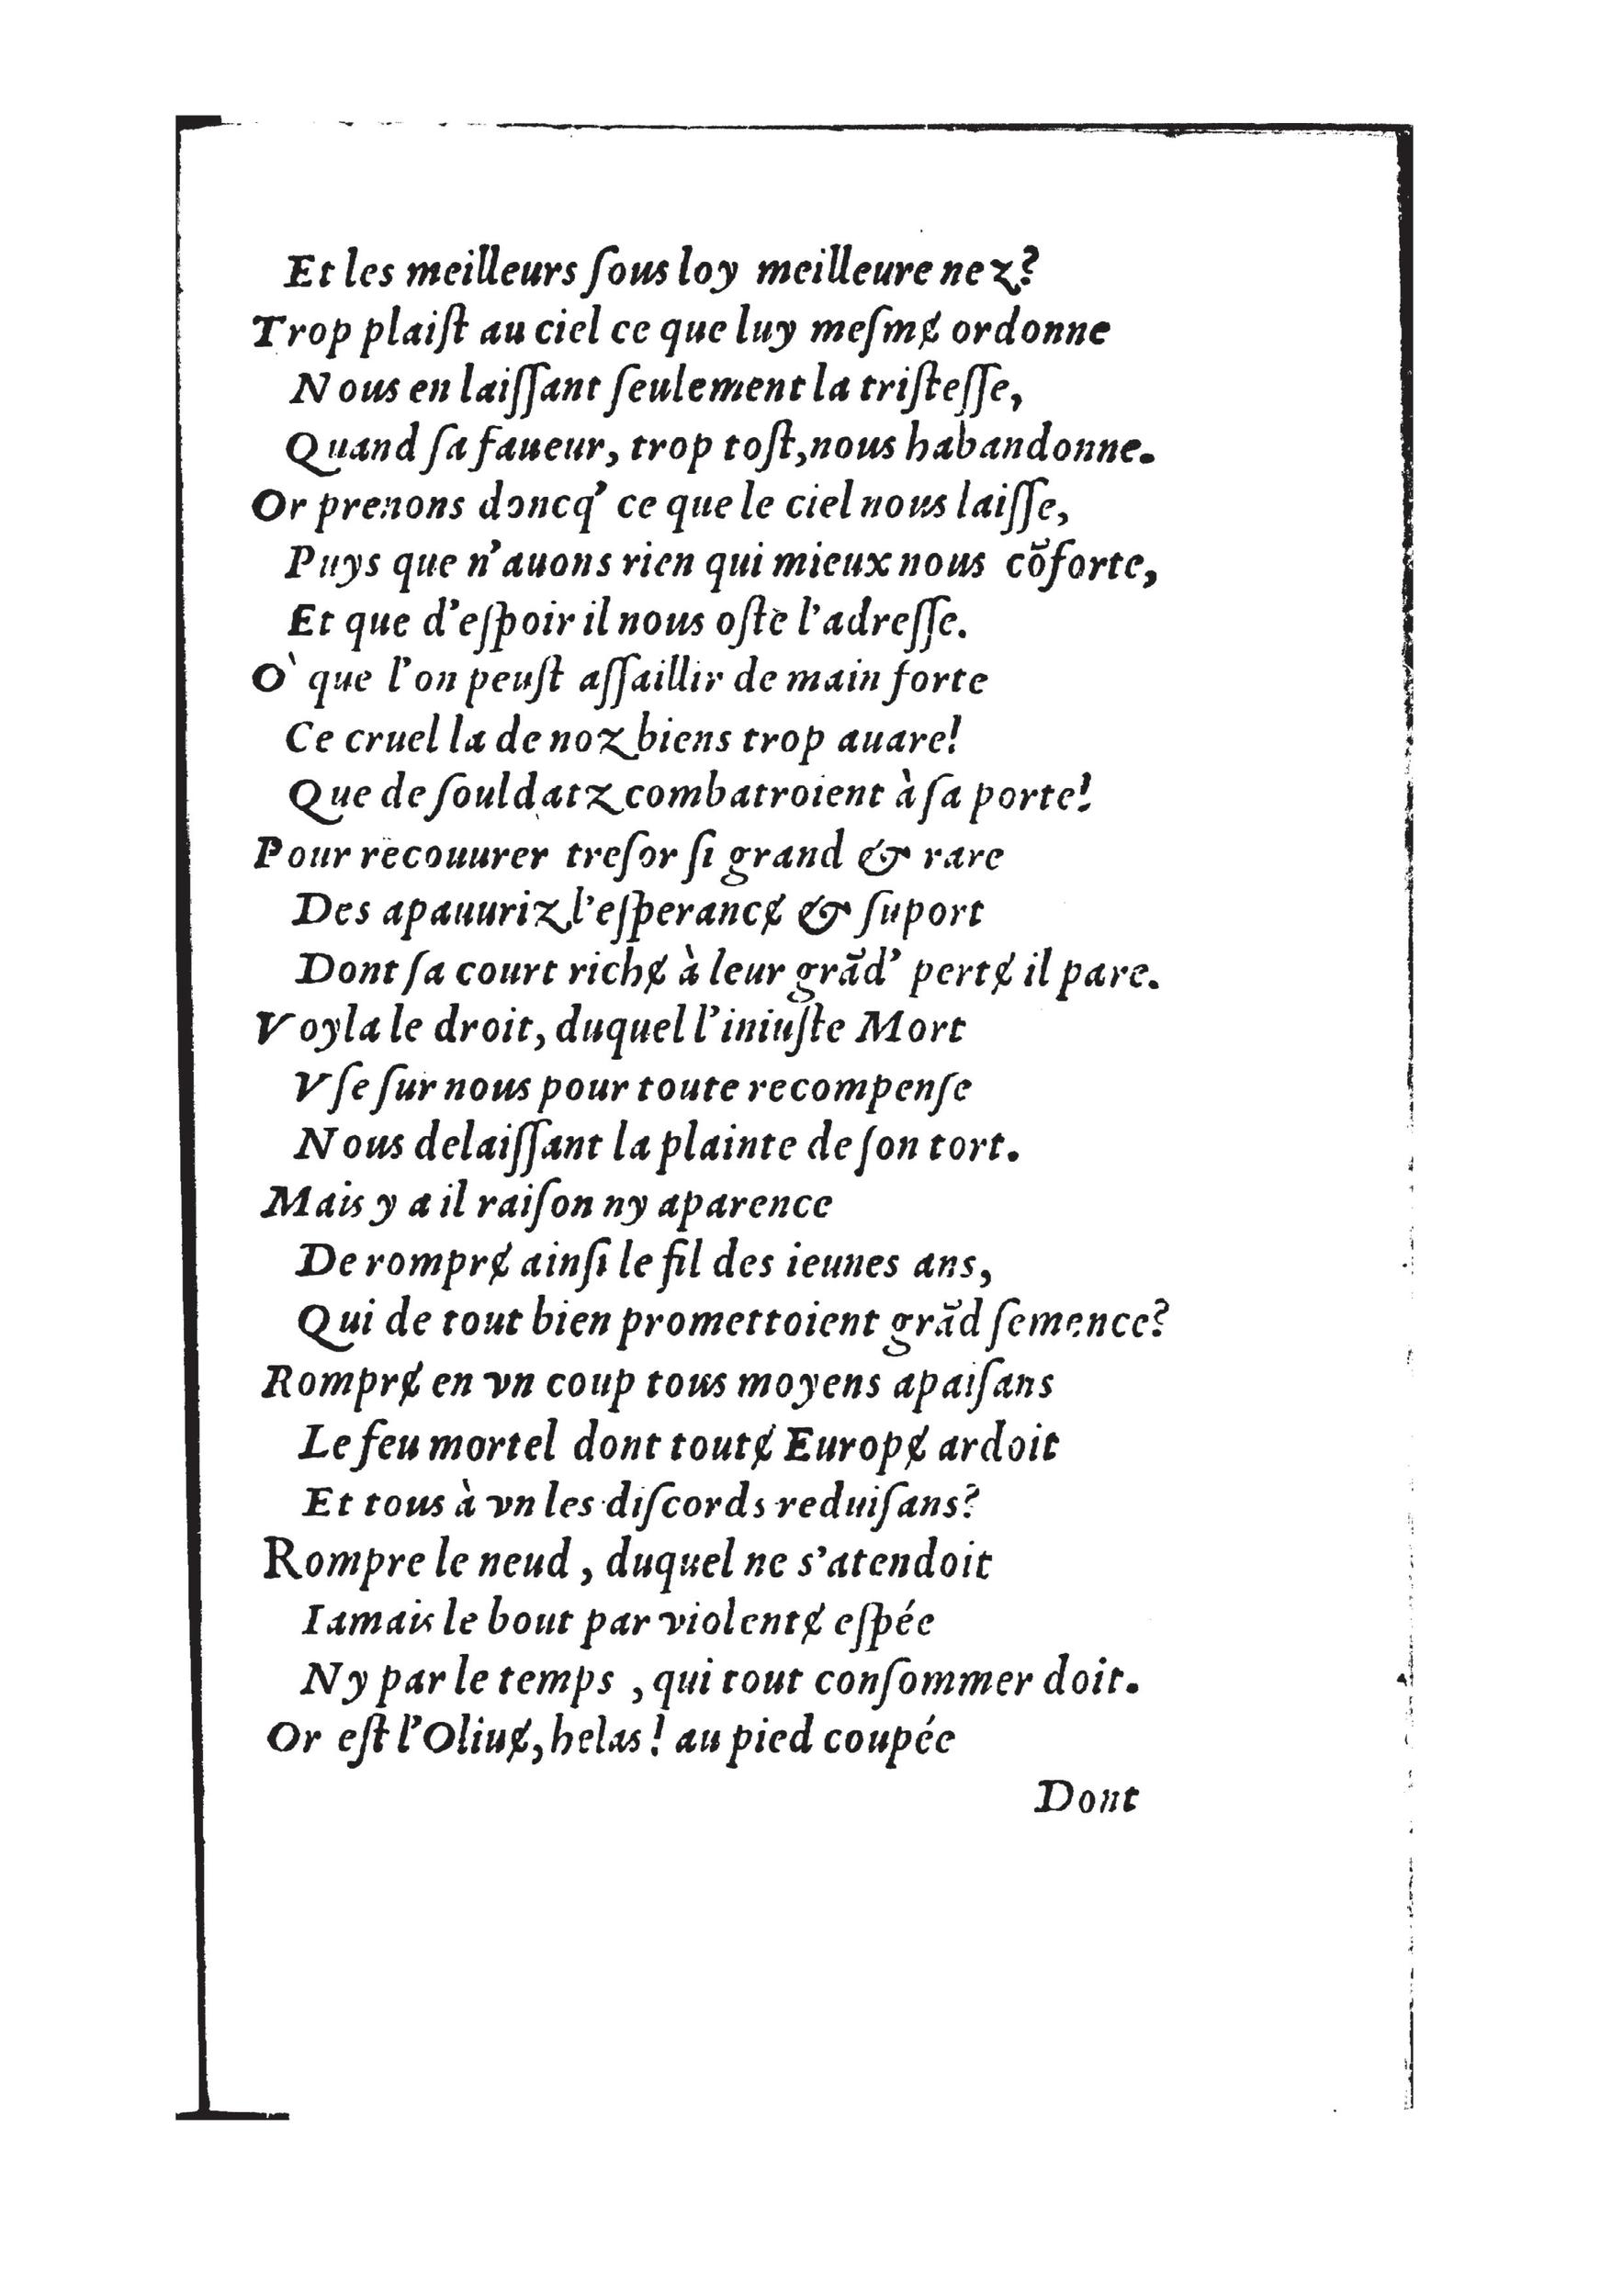 Et les meilleurs ſous loy meilleure nez?
Trop plaiſt au ciel ce que luy meſmɇ ordonne
Nous en laiſſant ſeulement la triſteſſe,
Quand ſa faueur, trop toſt, nous habandonne.
Or prenons doncq' ce que le ciel nous laiſſe,
Puys que n'auons rien qui mieux nous cõforte,
Et que d'eſpoir il nous oſte l'adreſſe.
O` que l'on peuſt aſſaillir de main forte
Ce cruel la de noz biens trop auare!
Que de ſouldatz combatroient à ſa porte!
Pour recouurer treſor ſi grand & rare
Des apauuriz l'eſperancɇ & ſuport
Dont ſa court richɇ à leur grãd' pertɇ il pare.
Voyla le droit, duquel l'iniuſte Mort
Vſe ſur nous pour toute recompenſe
Nous delaiſſant la plainte de ſon tort.
Mais y a il raiſon ny aparence
De romprɇ ainſi le fil des ieunes ans,
Qui de tout bien promettoient grãd ſemence?
Romprɇ en vn coup tous moyens apaiſans
Le feu mortel dont toutɇ Europɇ ardoit
Et tous à vn les diſcords reduiſans?
Rompre le neud, duquel ne s'atendoit
Iamais le bout par violentɇ eſpée
Ny par le temps, qui tout conſommer doit.
Or eſt l'Oliuɇ, helas! au pied coupée
Dont